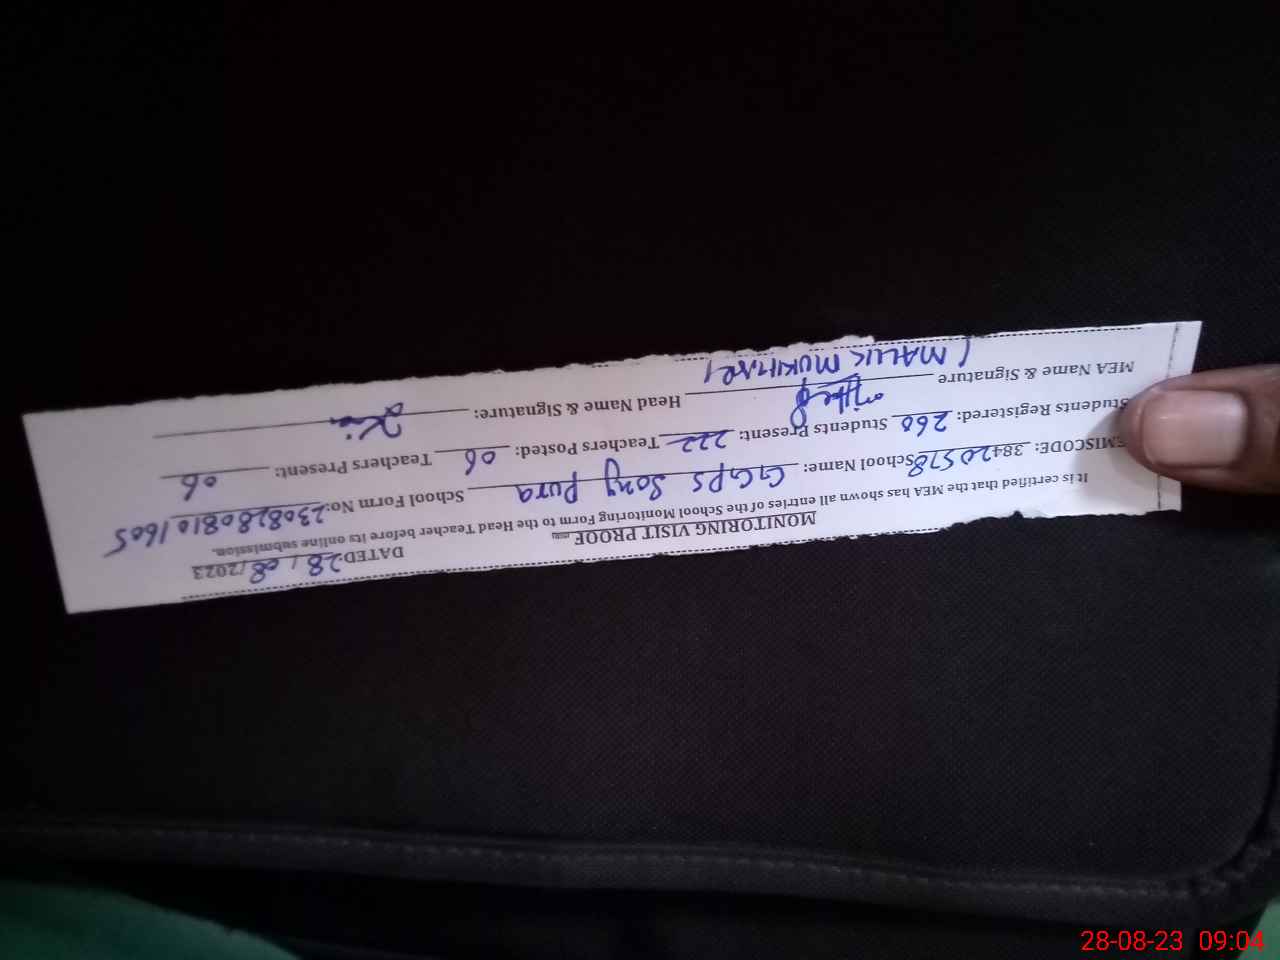 MONITORING VISIT PROOF
DATED 28/08/2023
It is certified that the MEA has shown all entries of the School Monitoring Form to the Head Teacher before its online submission.
EMISCODE: 38420578 School Name: GGPS Sony Pura School Form No: 23082808101605
Students Registered: 260 Students Present: 222 Teachers Posted: 06 Teachers Present: 06
MEA Name & Signature Head Name & Signature:
(MALIK MUKHTAR)
28-08-23 09:04